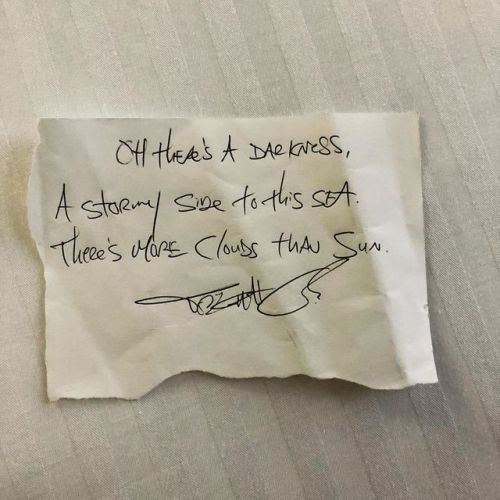 OH THERE'S A DARKNESS,
A STORMY SIDE to this SEA.
THERE'S MORE CLOUDS THAN SUN.